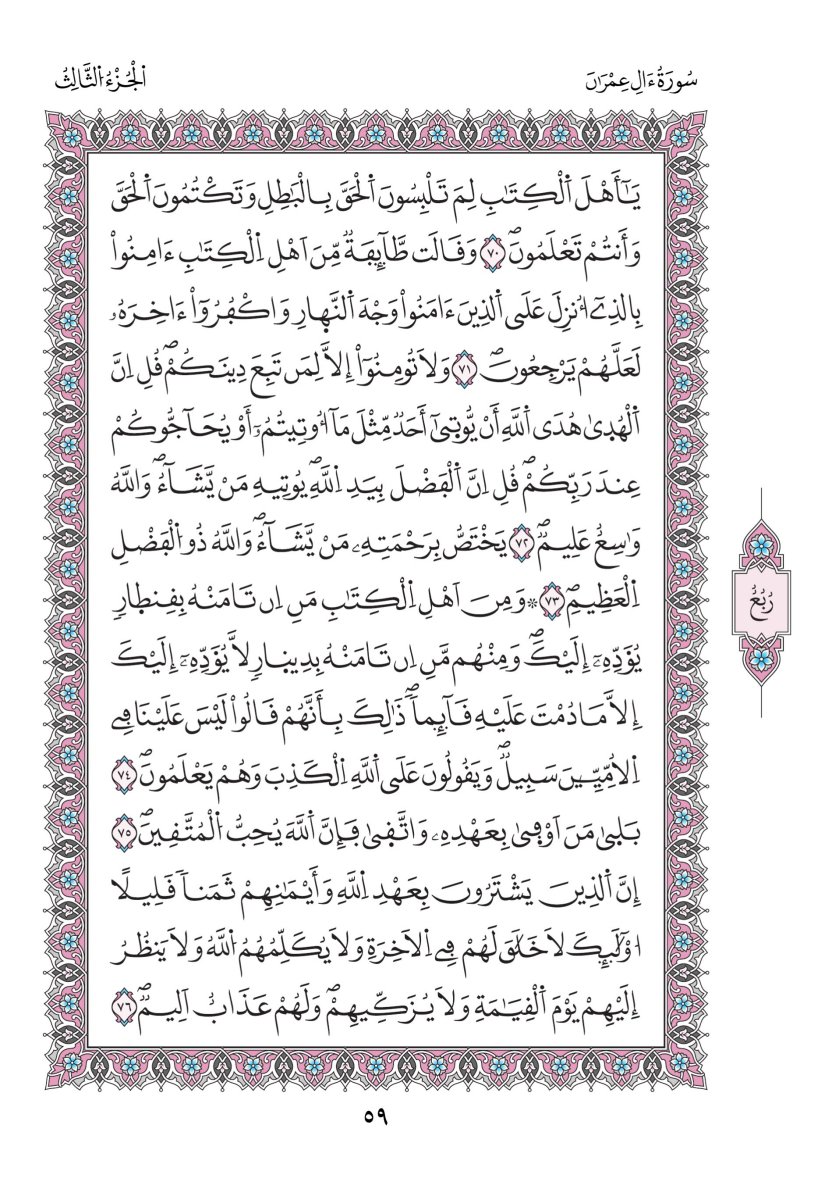 سُورَةُ ءَالِ عِمْرَٰنَ
اَ۬لْجُزْءُ اُ۬لثَّالِثُ
يَٰٓأَهْلَ اَ۬لْكِتَٰبِ لِمَ تَلْبِسُونَ اَ۬لْحَقَّ بِالْبَٰطِلِ وَتَكْتُمُونَ اَ۬لْحَقَّ
وَأَنتُمْ تَعْلَمُونَۖ ٧٠ وَقَالَت طَّآئِفَةٞ مِّنَ اَهْلِ اِ۬لْكِتَٰبِ ءَامِنُواْ
بِالذِےٓ أُنزِلَ عَلَي اَ۬لذِينَ ءَامَنُواْ وَجْهَ اَ۬لنَّه۪ارِ وَاكْفُرُوٓاْ ءَاخِرَهُۥ
لَعَلَّهُمْ يَرْجِعُونَۖ ٧١ وَلَا تُومِنُوٓاْ إِلَّا لِمَن تَبِعَ دِينَكُمْۖ قُلِ اِنَّ
اَ۬لْهُد۪يٰ هُدَي اَ۬للَّهِ أَنْ يُّوت۪يٰٓ أَحَدٞ مِّثْلَ مَآ أُوتِيتُمُۥٓ أَوْ يُحَآجُّوكُمْ
عِندَ رَبِّكُمْۖ قُلِ اِنَّ اَ۬لْفَضْلَ بِيَدِ اِ۬للَّهِۖ يُوتِيهِ مَنْ يَّشَآءُۖ وَاللَّهُ
وَٰسِعٌ عَلِيمٞۖ ٧٢ يَخْتَصُّ بِرَحْمَتِهِۦ مَنْ يَّشَآءُۖ وَاللَّهُ ذُو اُ۬لْفَضْلِ
اِ۬لْعَظِيمِۖ ٧٣ ۞ وَمِنَ اَهْلِ اِ۬لْكِتَٰبِ مَنِ اِن تَامَنْهُ بِقِنط۪ارٖ
يُؤَدِّهِۦٓ إِلَيْكَۖ وَمِنْهُم مَّنِ اِن تَامَنْهُ بِدِين۪ارٖ لَّا يُؤَدِّهِۦٓ إِلَيْكَ
إِلَّا مَا دُمْتَ عَلَيْهِ قَآئِماٗۖ ذَٰلِكَ بِأَنَّهُمْ قَالُواْ لَيْسَ عَلَيْنَا فِے
اِ۬لُامِّيِّـۧنَ سَبِيلٞۖ وَيَقُولُونَ عَلَي اَ۬للَّهِ اِ۬لْكَذِبَ وَهُمْ يَعْلَمُونَۖ ٧٤
بَل۪يٰ مَنَ اَوْف۪يٰ بِعَهْدِهِۦ وَاتَّق۪يٰ فَإِنَّ اَ۬للَّهَ يُحِبُّ اُ۬لْمُتَّقِينَۖ ٧٥
إِنَّ اَ۬لذِينَ يَشْتَرُونَ بِعَهْدِ اِ۬للَّهِ وَأَيْمَٰنِهِمْ ثَمَناٗ قَلِيلًا
ا۟وْلَٰٓئِكَ لَا خَلَٰقَ لَهُمْ فِے اِ۬لَاخِرَةِ وَلَا يُكَلِّمُهُمُ اُ۬للَّهُ وَلَا يَنظُرُ
إِلَيْهِمْ يَوْمَ اَ۬لْقِيَٰمَةِ وَلَا يُزَكِّيهِمْۖ وَلَهُمْ عَذَابٌ اَلِيمٞۖ ٧٦
رُبُعُ
٥٩